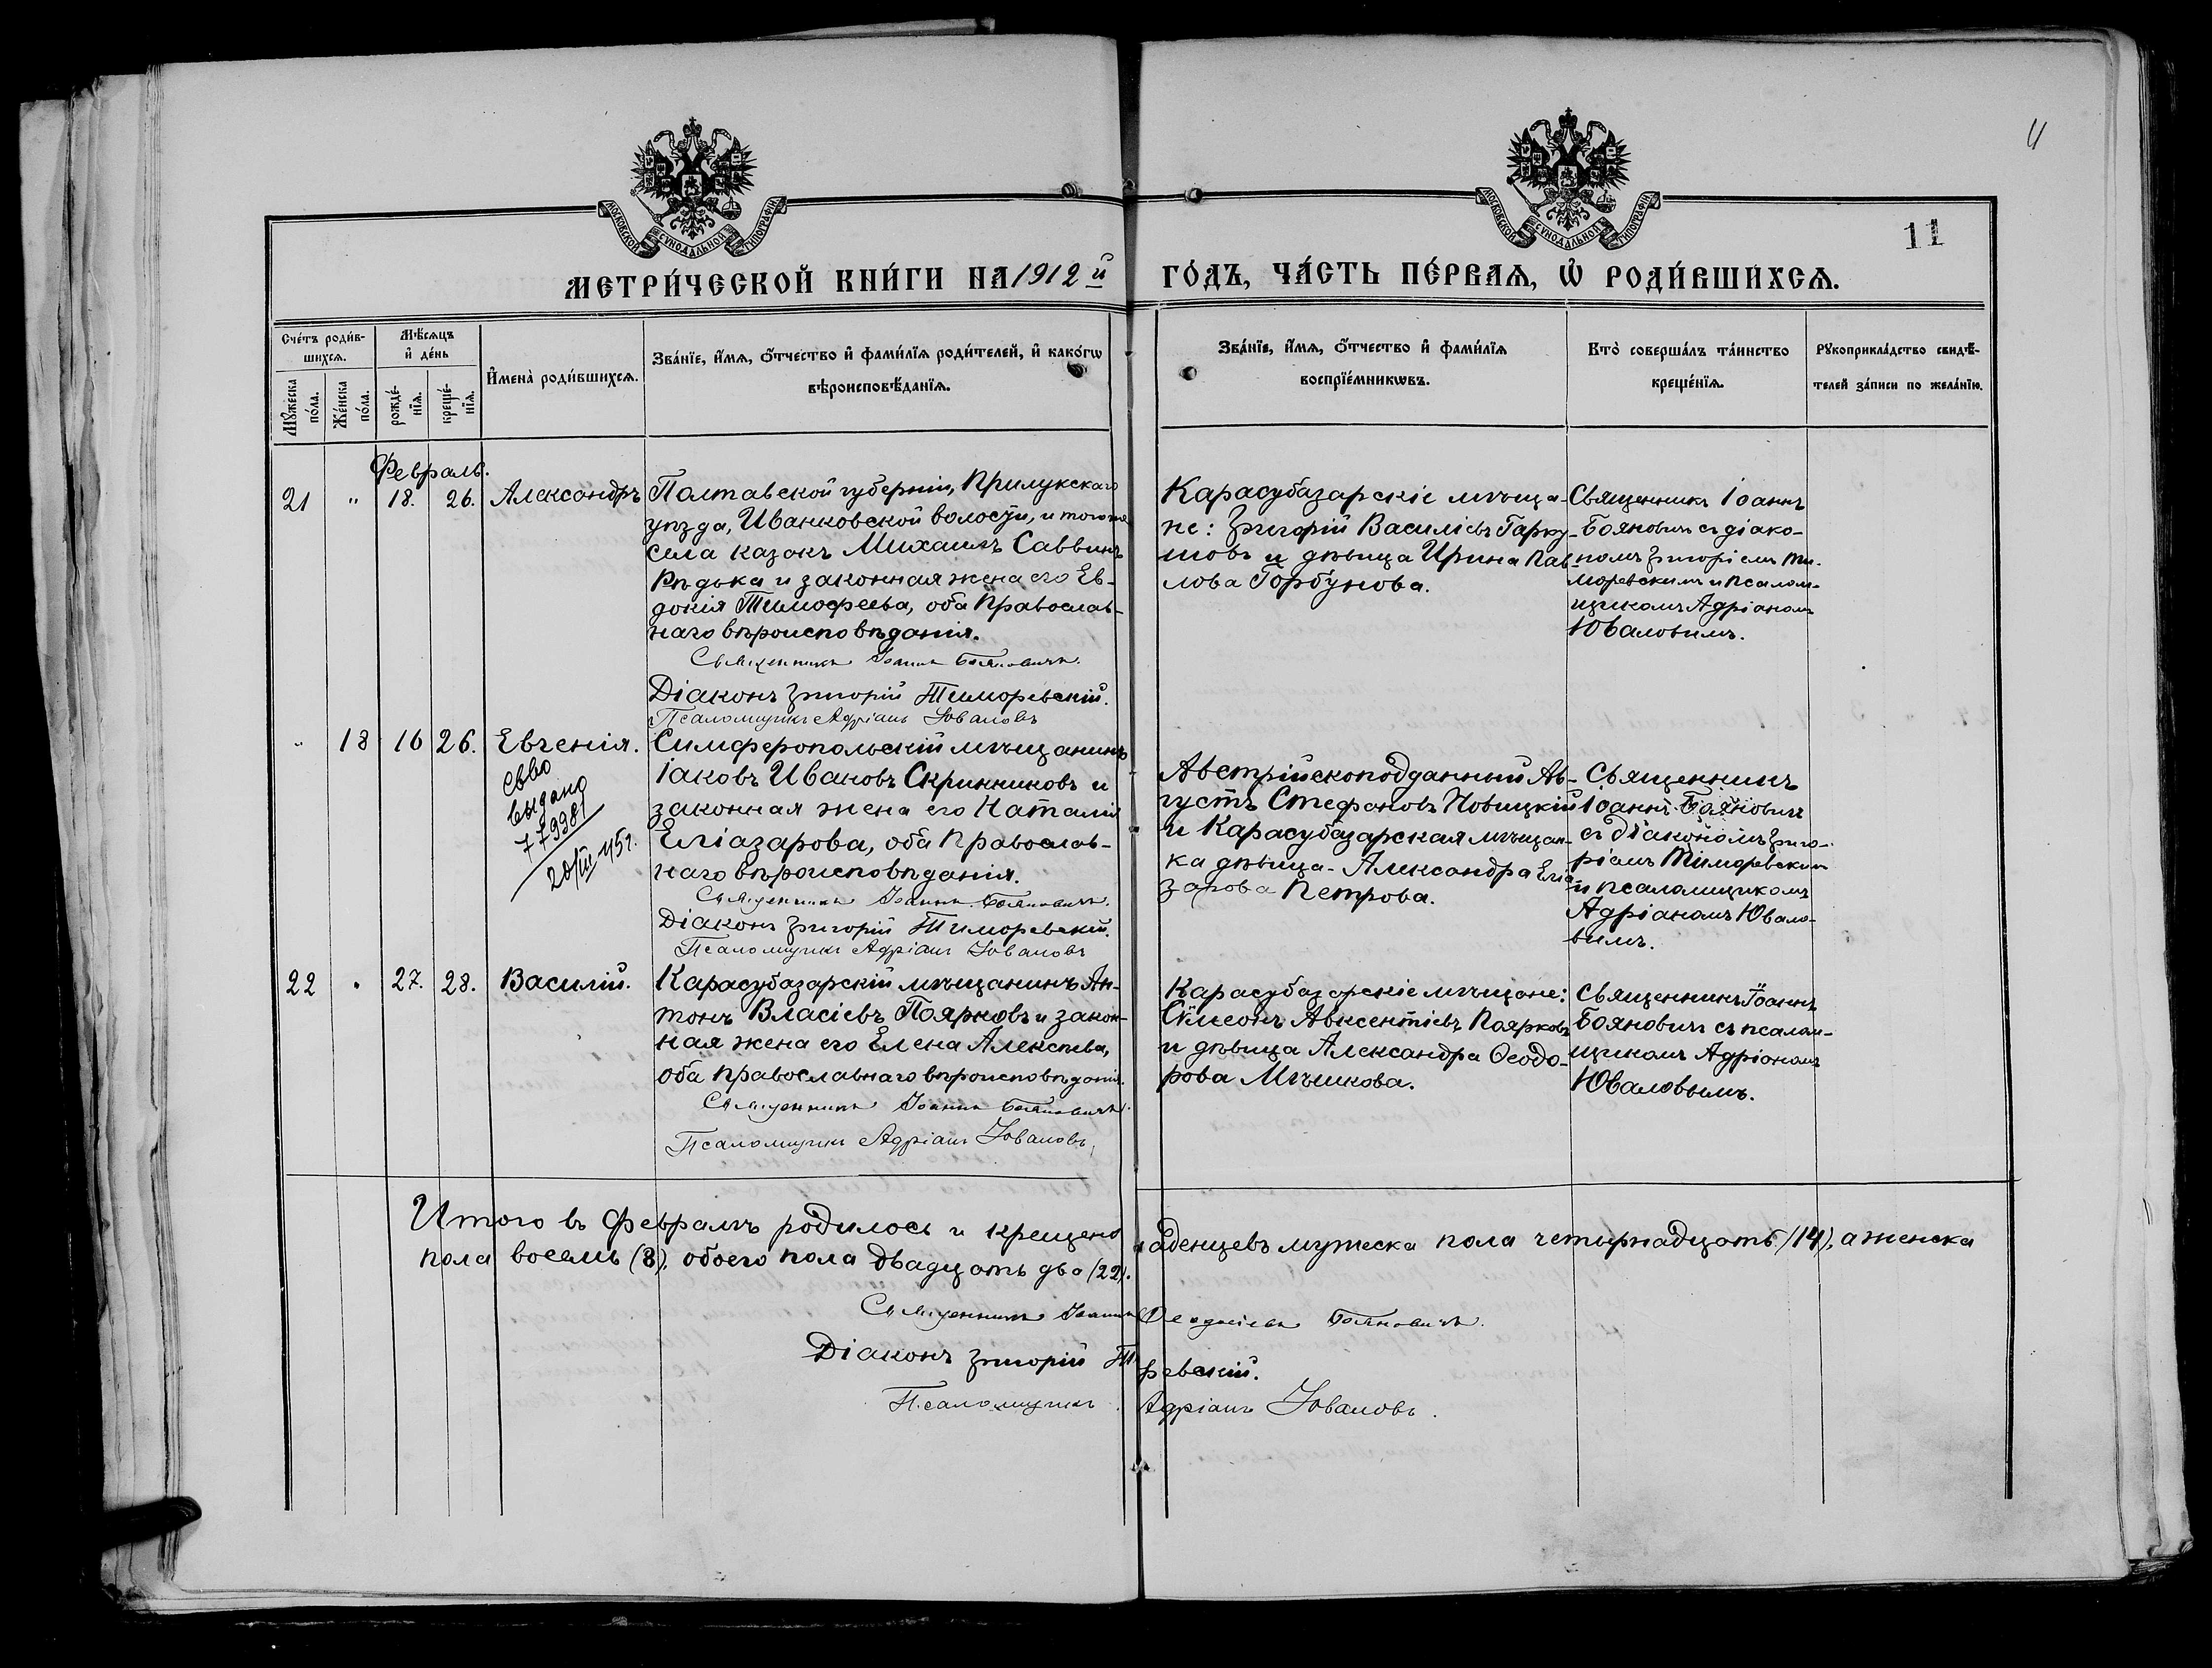 11
11
МОСКОВСКОЙ СУНОДАЛЬНОЙ ТИПОГРАФІИ
МОСКОВСКОЙ СУНОДАЛЬНОЙ ТИПОГРАФІИ
МЕТРИ́ЧЕСКОЙ КНИ́ГИ НА 1912 й ГО́ДЪ, ЧА́СТЬ ПЕ́РВАѦ, Ѡ҆ РОДИ́ВШИХСѦ.
Сче́тъ роди́в-
шихсѧ.
Мꙋ́жеска по́ла.
Же́нска по́ла.
Мѣ́сѧцъ
и҆ де́нь
рожде́-
нїѧ.
креще́-
нїѧ.
И҆мена̀ роди́вшихсѧ.
Зва́нїе, и҆́мѧ, ѻ҆́тчество и҆ фами́лїѧ роди́телей, и҆ како́гѡ
вѣроисповѣ́данїѧ.
Зва́нїе, и҆́мѧ, ѻ҆́тчество и҆ фами́лїѧ
воспрїе́мникѡвъ.
Кто̀ соверша́лъ та́инство
креще́нїѧ.
Рꙋкоприкла́дство свидѣ́-
телей за́писи по жела́нїю.
Февраль.
21 " 18. 26. Александръ
Полтавской губерніи, Прилукскаго
уѣзда, Иванковской волости, и того же
села казакъ Михаилъ Саввинъ
Рѣдька и законная жена его Ев-
докія Тимофеева, оба Православ-
наго вѣроисповѣданія.
Священникъ Іоаннъ Бояновичъ.
Діаконъ Григорій Тиморевскій.
Псаломщикъ Адріанъ Юваловъ
Карасубазарскіе мѣща-
не: Григорій Василіевъ Гарку-
шовъ и дѣвица Ирина Пав-
лова Горбунова.
Священникъ Іоаннъ
Бояновичъ съ діако-
номъ Григоріемъ Ти-
моревскимъ и псалом-
щикомъ Адріаномъ
Юваловымъ.
" 18 16 26. Евгенія.
Св-во
выдано
779981
20/III 45г.
Симферопольскій мѣщанинъ
Іаковъ Ивановъ Скринниковъ и
законная жена его Наталія
Еліазарова, оба Православ-
наго вѣроисповѣданія.
Священникъ Іоаннъ Бояновичъ.
Діаконъ Григорій Тиморевскій.
Псаломщикъ Адріанъ Юваловъ
Австрійскоподданный Ав-
густъ Стефановъ Новицкій
и Карасубазарская мѣщан-
ка дѣвица - Александра Елеа-
зарова Петрова.
Священникъ
Іоаннъ Бояновичъ
съ діакономъ Григо-
ріемъ Тиморевскимъ
и псаломщикомъ
Адріаномъ Ювало-
вымъ.
22 " 27. 28. Василій.
Карасубазарскій мѣщанинъ Ан-
тонъ Власіевъ Поярковъ и закон-
ная жена его Елена Алексѣева,
оба православнаго вѣроисповѣданія.
Священникъ Іоаннъ Бояновичъ.
Псаломщикъ Адріанъ Юваловъ
Карасубазарскіе мѣщане:
Сѷмеонъ Авксентіевъ Поярковъ
и дѣвица Александра Ѳеодо-
рова Мѣшкова.
Священникъ Іоаннъ
Бояновичъ съ псалом-
щикомъ Адріаномъ
Юваловымъ.
Итого въ Февралѣ родилось и крещено младенцевъ мужеска пола четырнадцать (14), а женска
пола восемь (8), обоего пола двадцать два (22).
Священникъ Іоаннъ Бояновичъ.
Діаконъ Григорій Тиморевскій.
Псаломщикъ Адріанъ Юваловъ.